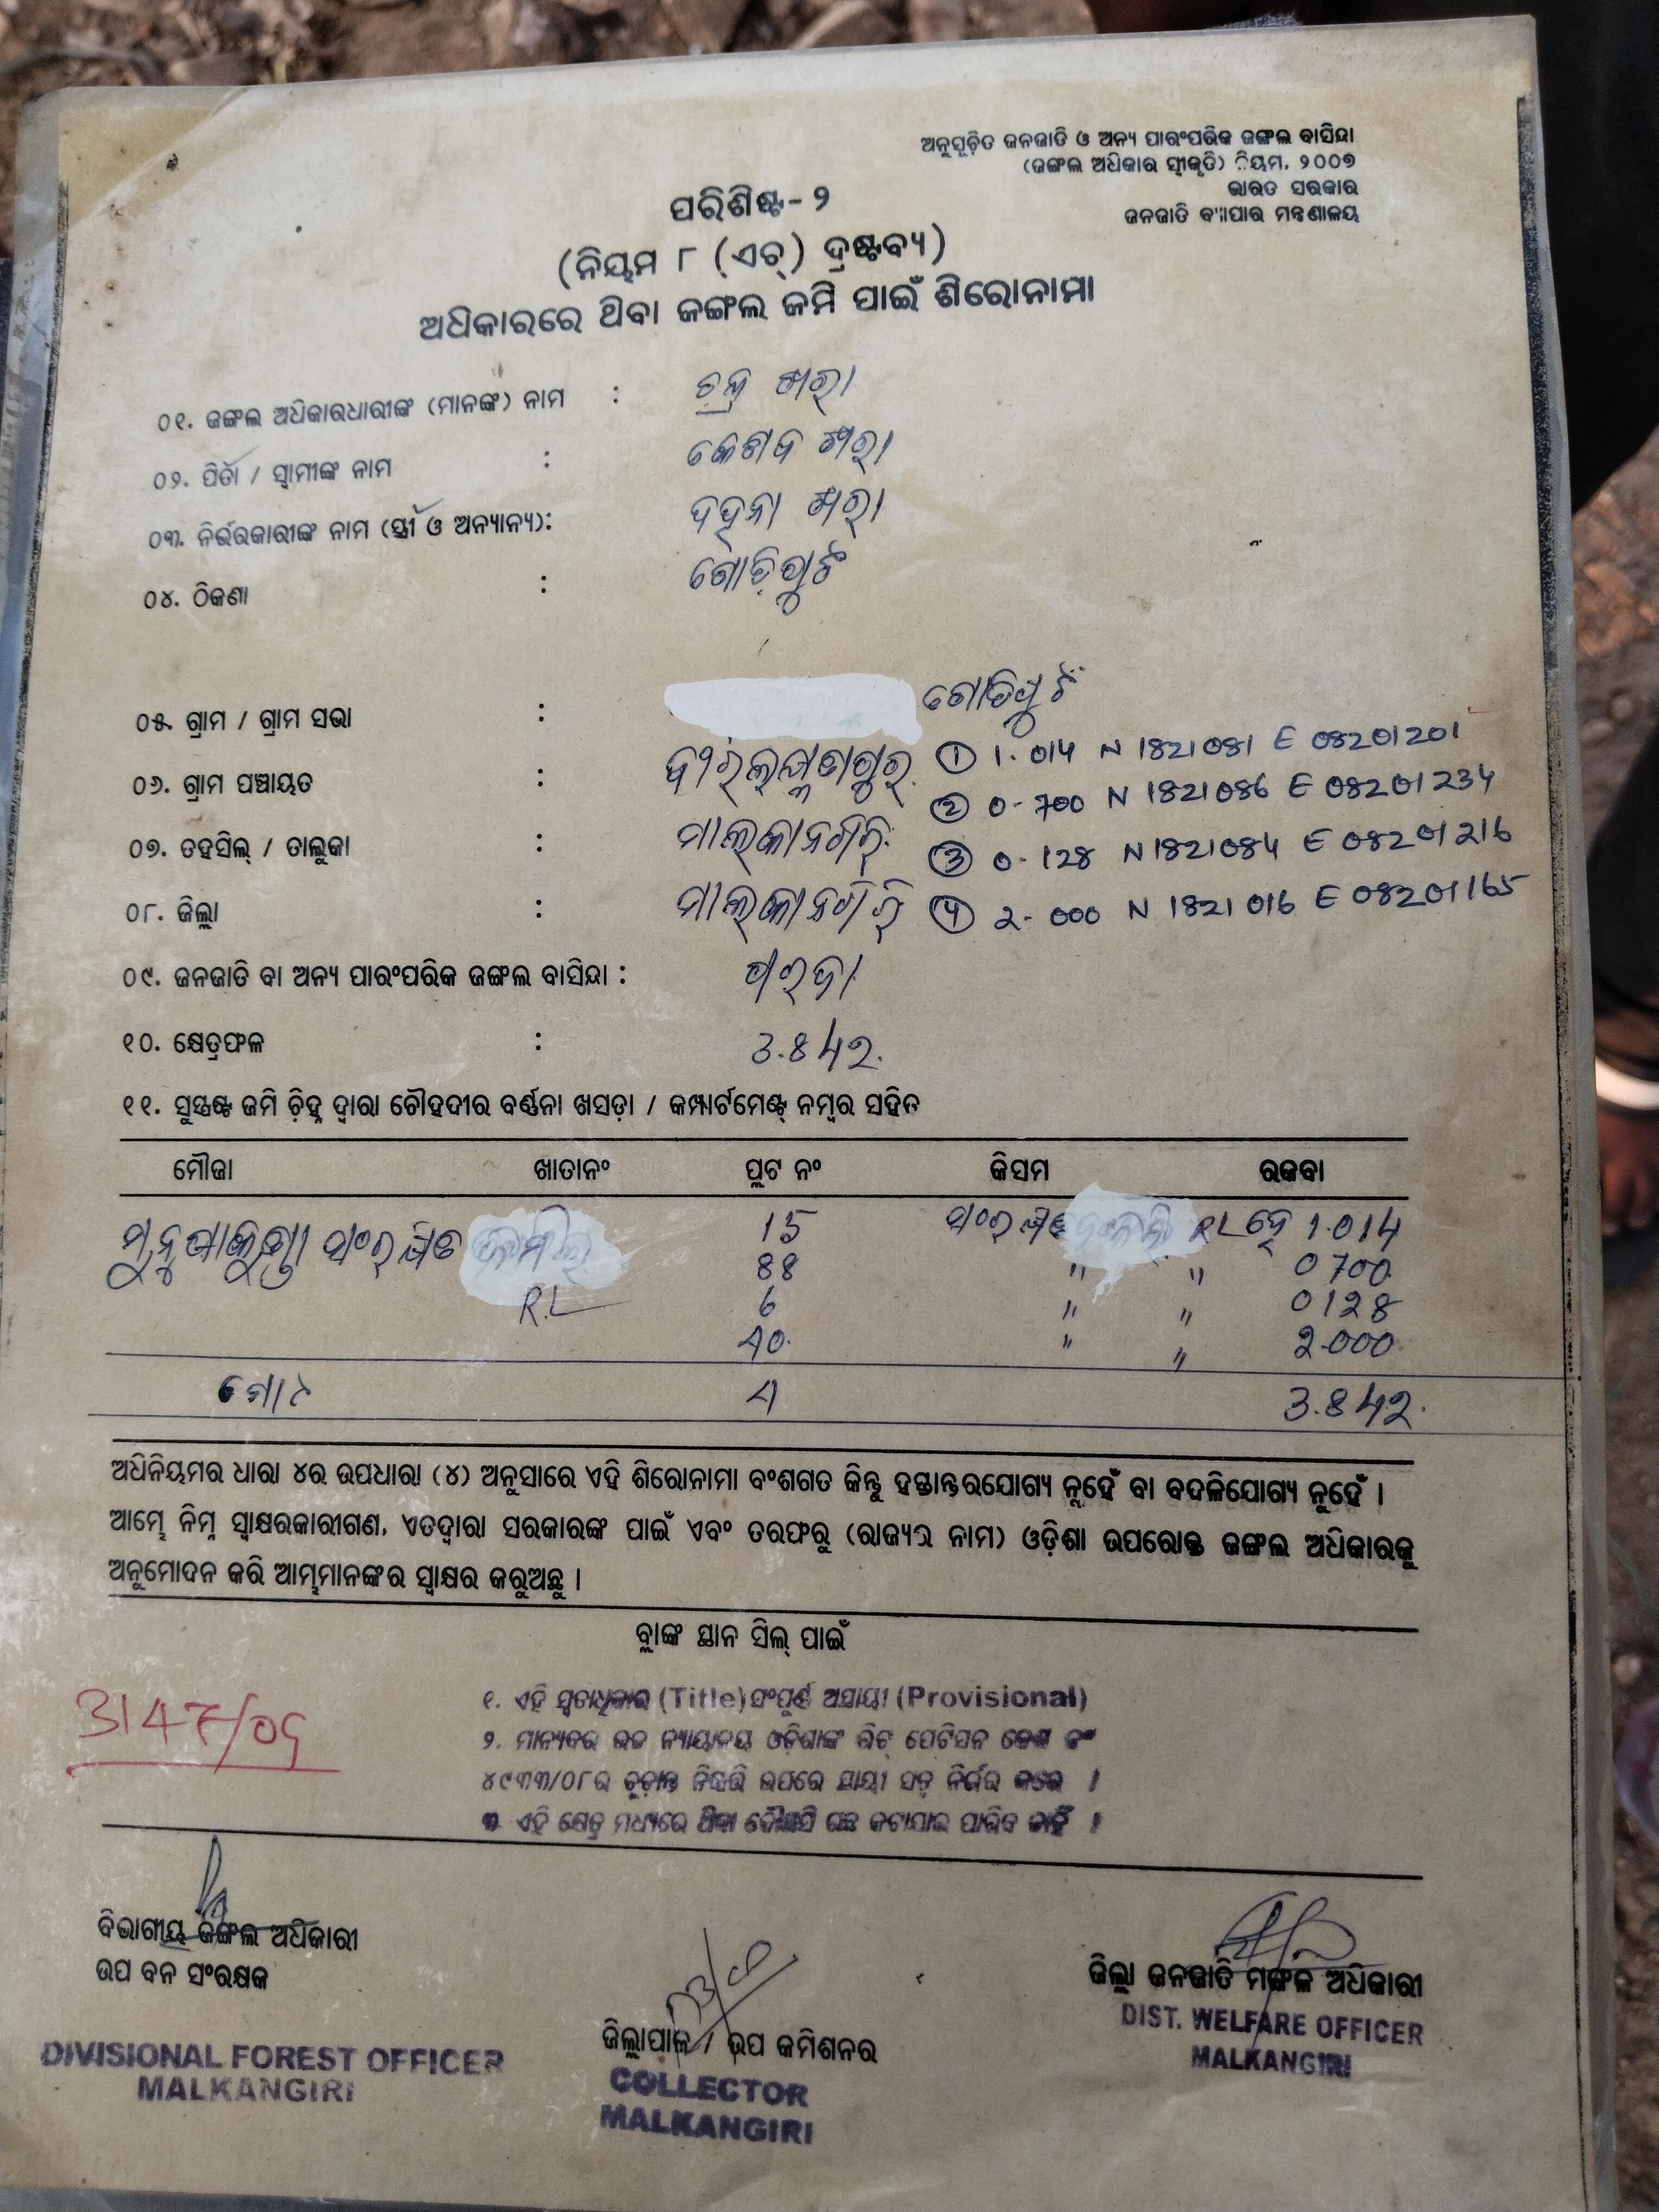 ଅନୁସୂଚିତ ଜନଜାତି ଓ ଅନ୍ୟ ପାରଂପରିକ ଜଙ୍ଗଲ ବାସିନ୍ଦା
(ଜଙ୍ଗଲ ଅଧିକାର ସ୍ୱୀକୃତି) ନିୟମ, ୨୦୦୭
ଭାରତ ସରକାର
ଜନଜାତି ବ୍ୟାପାର ମନ୍ତ୍ରଣାଳୟ
ପରିଶିଷ୍ଟ-୨
(ନିୟମ ୮ (ଏଚ୍) ଦ୍ରଷ୍ଟବ୍ୟ)
ଅଧିକାରରେ ଥିବା ଜଙ୍ଗଲ ଜମି ପାଇଁ ଶିରୋନାମା
୦୧. ଜଙ୍ଗଲ ଅଧିକାରଧାରୀଙ୍କ (ମାନଙ୍କ) ନାମ : ଖରା
୦୨. ପିତା / ସ୍ୱାମୀଙ୍କ ନାମ : କେଶବ ଖରା
୦୩. ନିର୍ଭରକାରୀଙ୍କ ନାମ (ସ୍ତ୍ରୀ ଓ ଅନ୍ୟାନ୍ୟ): ଖରା
୦୪. ଠିକଣା :
୦୫. ଗ୍ରାମ / ଗ୍ରାମ ସଭା :
୦୬. ଗ୍ରାମ ପଞ୍ଚାୟତ : ① 1.014 N 1821081 E 08201201
② 0-700 N 1821086 E 08201234
୦୭. ତହସିଲ୍ / ତାଲୁକା : ମାଲ୍‌କାନଗିରି
③ 0-128 N 1821084 E 08201216
୦୮. ଜିଲ୍ଲା : ମାଲ୍‌କାନଗିରି ④ 2-000 N 1821016 E 08201165
୦୯. ଜନଜାତି ବା ଅନ୍ୟ ପାରଂପରିକ ଜଙ୍ଗଲ ବାସିନ୍ଦା : ପରଜା
୧୦. କ୍ଷେତ୍ରଫଳ : 3.842.
୧୧. ସୁସ୍ପଷ୍ଟ ଜମି ଚିହ୍ନ ଦ୍ୱାରା ଚୌହଦୀର ବର୍ଣ୍ଣନା ଖସଡ଼ା / କମ୍ପାର୍ଟମେଣ୍ଟ୍ ନମ୍ବର ସହିତ
ମୌଜା ଖାତାନଂ ପ୍ଲଟ ନଂ କିସମ ରକବା
15 RL 1.014
88 " " 0700
R.L 6 " " 0128
40. " " 2.000
ମୋଟ 4 3.842.
ଅଧିନିୟମର ଧାରା ୪ର ଉପଧାରା (୪) ଅନୁସାରେ ଏହି ଶିରୋନାମା ବଂଶଗତ କିନ୍ତୁ ହସ୍ତାନ୍ତରଯୋଗ୍ୟ ନୁହେଁ ବା ବଦଳିଯୋଗ୍ୟ ନୁହେଁ ।
ଆମ୍ଭେ ନିମ୍ନ ସ୍ୱାକ୍ଷରକାରୀଗଣ, ଏତଦ୍ୱାରା ସରକାରଙ୍କ ପାଇଁ ଏବଂ ତରଫରୁ (ରାଜ୍ୟର ନାମ) ଓଡ଼ିଶା ଉପରୋକ୍ତ ଜଙ୍ଗଲ ଅଧିକାରକୁ
ଅନୁମୋଦନ କରି ଆମ୍ଭମାନଙ୍କର ସ୍ୱାକ୍ଷର କରୁଅଛୁ ।
ବ୍ଲାଙ୍କ ସ୍ଥାନ ସିଲ୍ ପାଇଁ
3147/09
୧. ଏହି ସ୍ୱତାଧିକାର (Title) ସଂପୂର୍ଣ୍ଣ ଅସ୍ଥାୟୀ (Provisional)
୨. ମାନ୍ୟବର ଉଚ୍ଚ ନ୍ୟାୟାଳୟ ଓଡ଼ିଶାଙ୍କ ରିଟ୍ ପେଟିସନ କେଶ ନଂ
୪୯୩୩/୦୮ର ଚୂଡ଼ାନ୍ତ ନିଷ୍ପତ୍ତି ଉପରେ ସ୍ଥାୟୀ ସତ୍ୱ ନିର୍ଭର କରେ ।
୩ ଏହି କ୍ଷେତ୍ର ମଧ୍ୟରେ ଥିବା କୌଣସି ଗଛ କଟାଯାଇ ପାରିବ ନାହିଁ ।
ବିଭାଗୀୟ ଜଙ୍ଗଲ ଅଧିକାରୀ
ଉପ ବନ ସଂରକ୍ଷକ
DIVISIONAL FOREST OFFICER
MALKANGIRI
ଜିଲ୍ଲାପାଳ / ଉପ କମିଶନର
COLLECTOR
MALKANGIRI
ଜିଲ୍ଲା ଜନଜାତି ମଙ୍ଗଳ ଅଧିକାରୀ
DIST. WELFARE OFFICER
MALKANGIRI